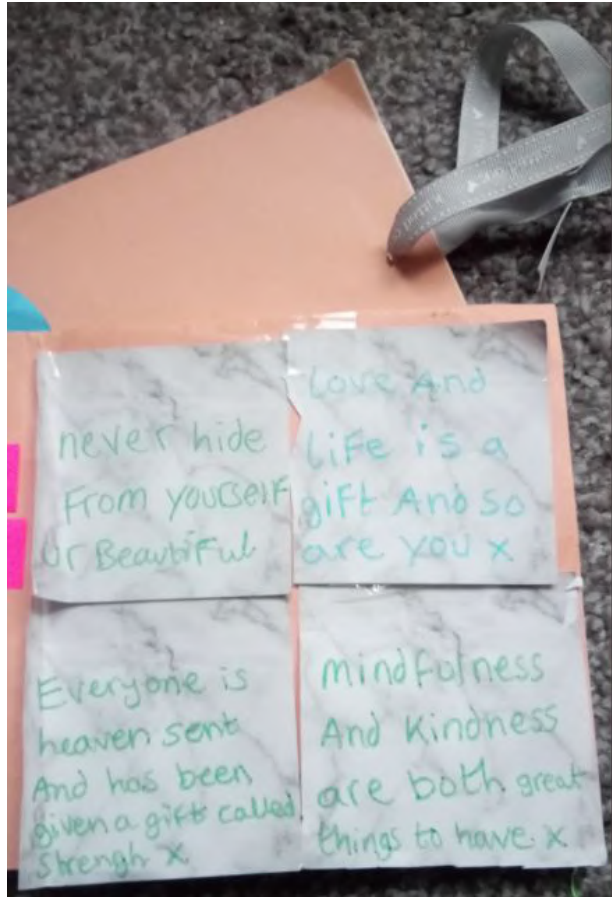 never hide
From yourself
Ur Beautiful
Love And
LiFe is a
gift And so
are you x
Everyone is
heaven sent
And has been
given a gift called
Strengh x
mindfulness
And Kindness
are both great
things to have x